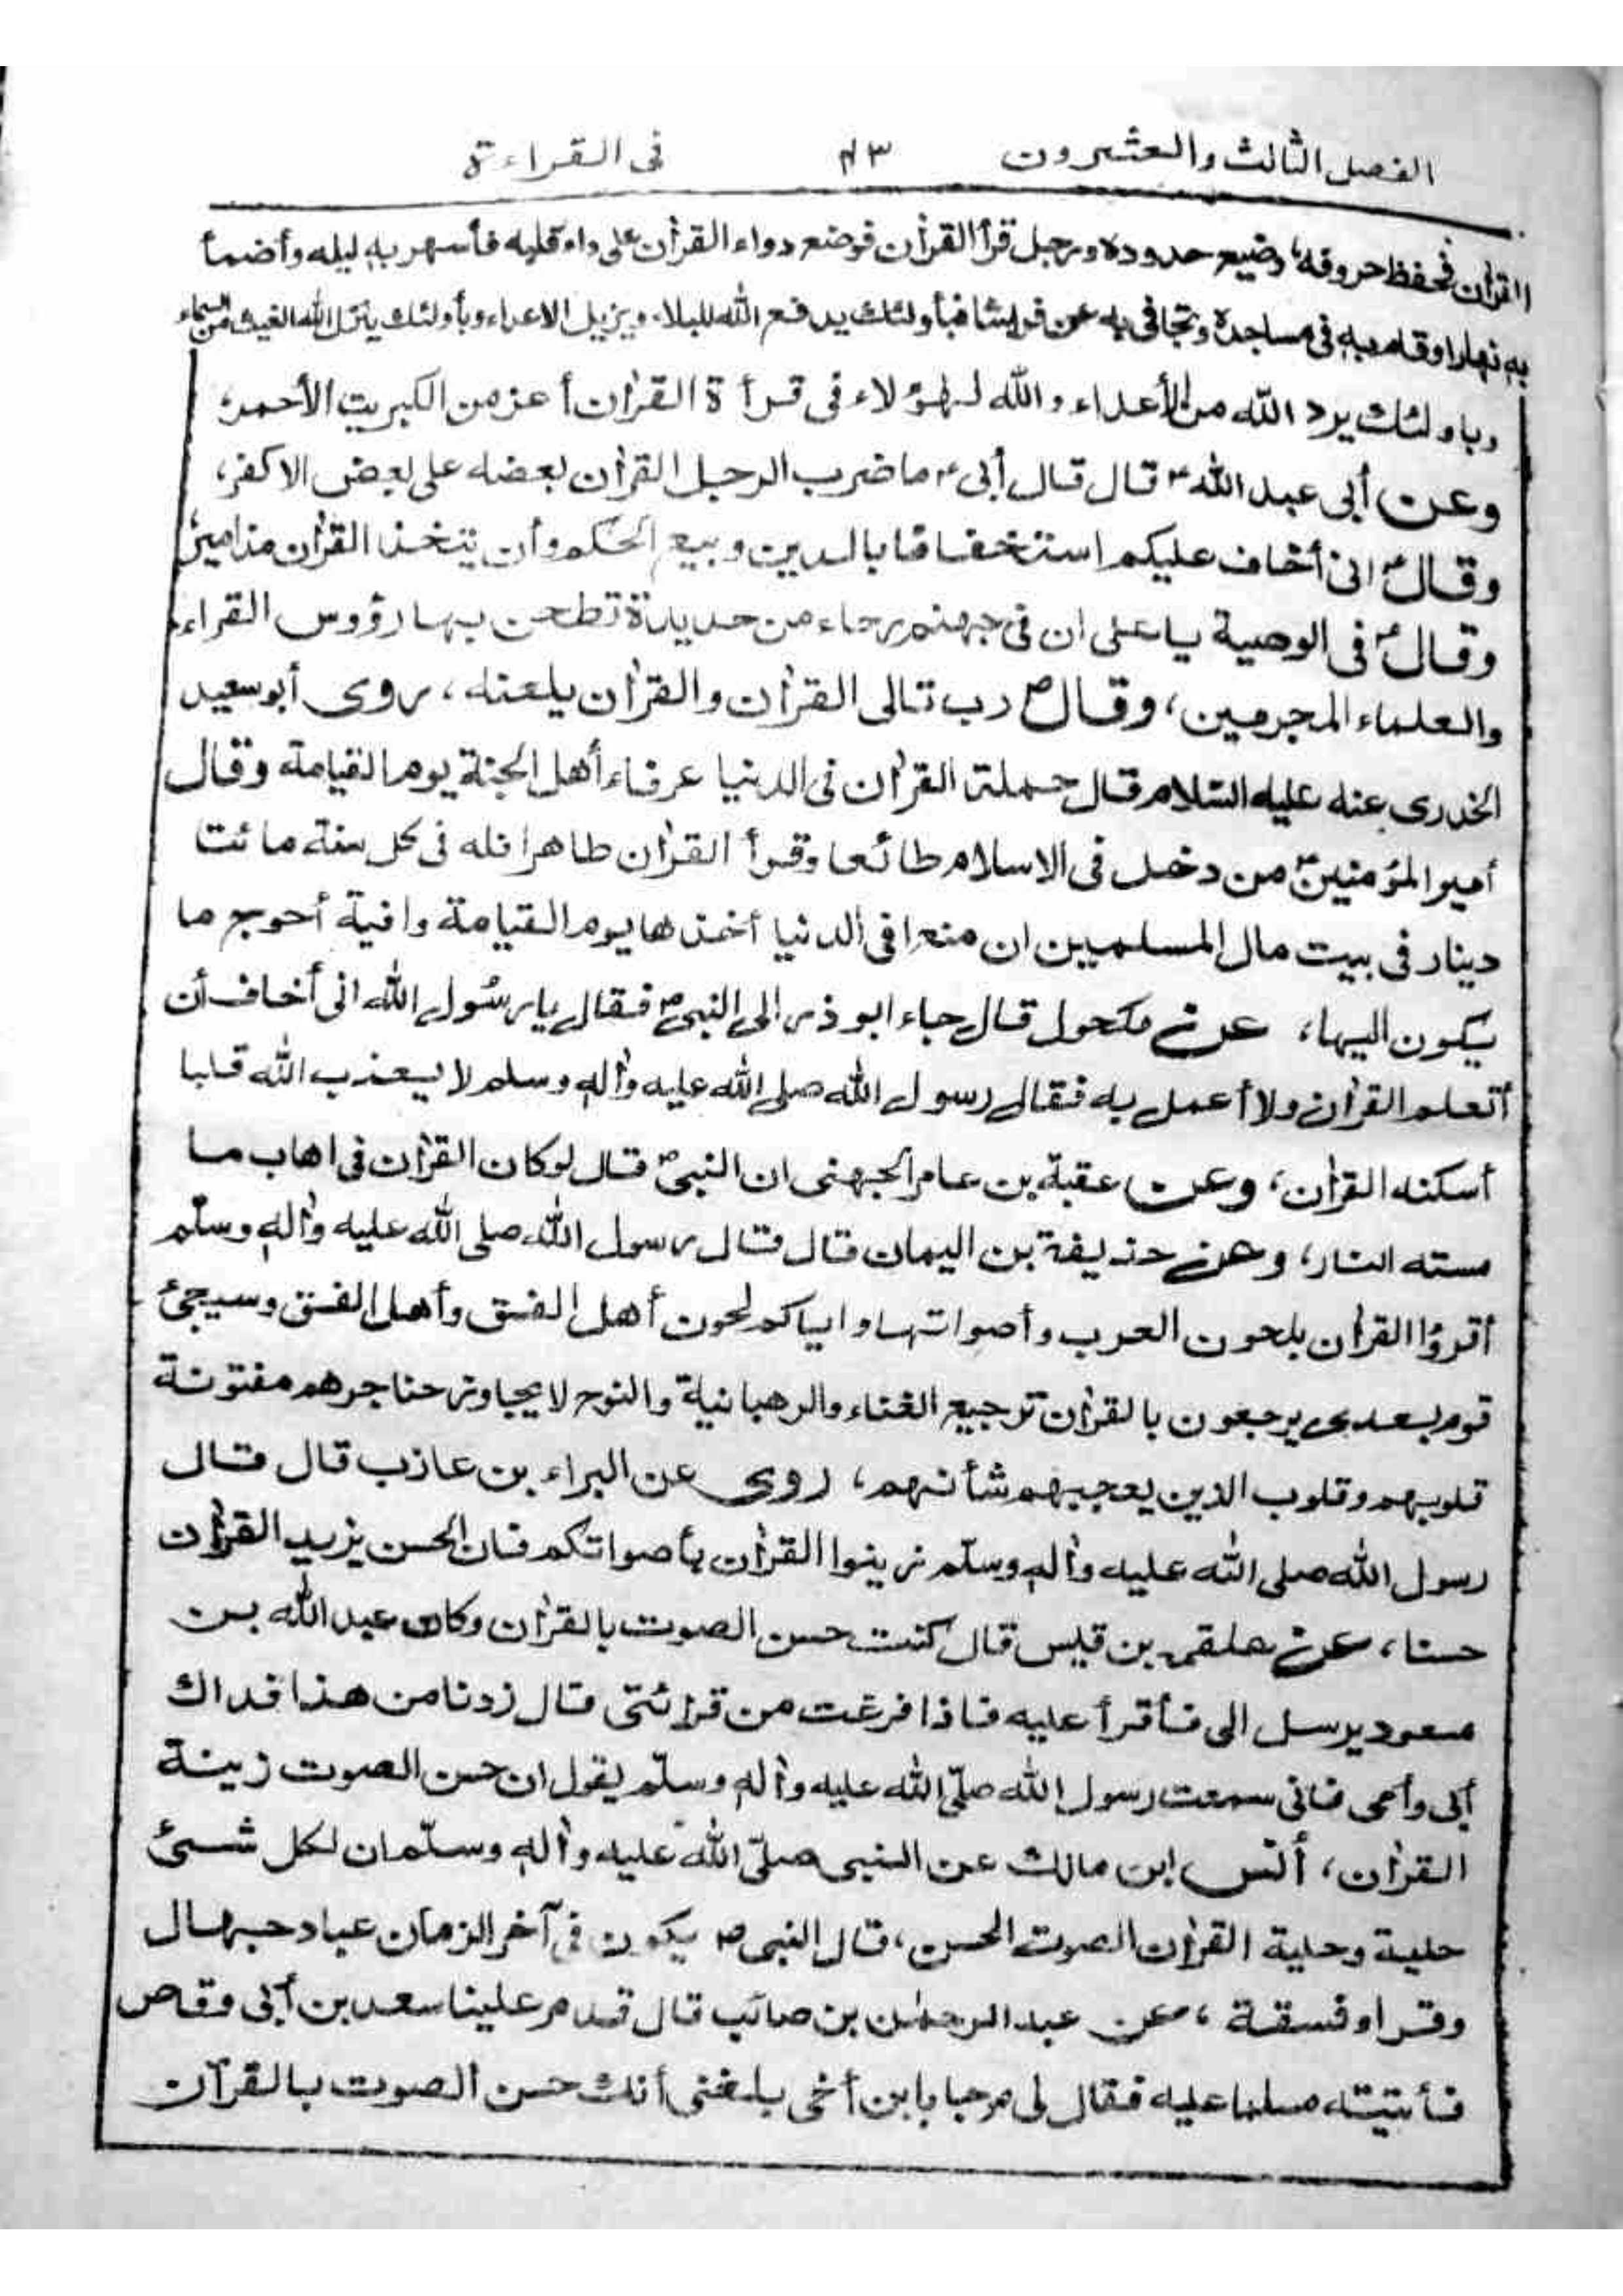 الفصل الثالث والعشرون ٤٣ فى القراءة
القرٰان فحفظ حروفه، وضيع حدوده ورجل قرأ القرٰان فوضع دواء القرٰان على داء قلبه فأسهر به ليله وأضمأ
به نهارا وقام به فى مساجده وتجافى به عن فراشا فبأولئك يدفع الله البلاء ويزيل الاعداء وبأولئك ينزل الله الغيث من السماء
وباولئك يرد الله من الأعداء والله لهؤلاء فى قرأة القرٰان أعز من الكبريت الأحمر،
وعن أبى عبد الله ؑ قال قال أبى ؑ ما ضرب الرجل القرٰان بعضه على بعض الا كفر،
وقال ؑ انى أخاف عليكم استخفافا بالدين وبيع الحكم وأن تتخذ القرٰان مزامير،
وقال ؑ فى الوصية يا على ان فى جهنم رحاء من حديدة تطحن بها رؤوس القراء
والعلماء المجرمين، وقال ؐ رب تالى القرٰان والقرٰان يلعنه، روى أبو سعيد
الخدرى عنه عليه السّلام قال حملة القرٰان فى الدنيا عرفاء أهل الجنة يوم القيامة وقال
أمير المؤمنين ؑ من دخل فى الاسلام طائعا وقرأ القرٰان طاهرا فله فى كل سنة مائتا
دينار فى بيت مال المسلمين ان منعها فى الدنيا أخذها يوم القيامة وافية أحوج ما
يكون اليها، عن مكحول قال جاء ابو ذر الى النبى ؐ فقال يا رسول الله انى أخاف أن
أتعلم القرٰان ولا أعمل به فقال رسول الله صلى الله عليه واٰله وسلم لا يعذب الله قلبا
أسكنه القرٰان، وعن عقبة بن عامر الجهنى ان النبى ؐ قال لو كان القرٰان فى اهاب ما
مسته النار، وعن حذيفة بن اليمان قال قال رسول الله صلى الله عليه واٰله وسلّم
أقرؤا القرٰان بلحون العرب وأصواتها واياكم لحون أهل الفسق وأهل الفسق وسيجئ
قوم بعدى يرجعون بالقرٰان ترجيع الغناء والرهبانية والنوح لا يجاوز حناجرهم مفتونة
قلوبهم وقلوب الذين يعجبهم شأنهم، روى عن البراء بن عازب قال قال
رسول الله صلى الله عليه واٰله وسلّم زينوا القرٰان بأصواتكم فان الحسن يزيد القرٰان
حسنا، عن علقمه بن قيس قال كنت حسن الصوت بالقرٰان وكان عبد الله بن
مسعود يرسل الى فأقرأ عليه فاذا فرغت من قرائتى قال زدنا من هذا فداك
أبى وأمى فانى سمعت رسول الله صلّى الله عليه واٰله وسلّم يقول ان حسن الصوت زينة
القرٰان، أنس ابن مالك عن النبى صلّى الله عليه واٰله وسلّم ان لكل شىئ
حلية وحلية القرٰان الصوت الحسن، قال النبى ؐ يكون فى آخر الزمان عباد جهال
وقراء فسقة، عن عبد الرحمٰن بن صائب قال قدم علينا سعد بن أبى وقاص
فأتيته مسلما عليه فقال لى مرحبا يا بن أخى بلغنى أنك حسن الصوت بالقرآن